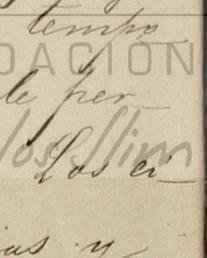 tempo
DACIÓN
de per-
los Slim
Los ci-
ias y